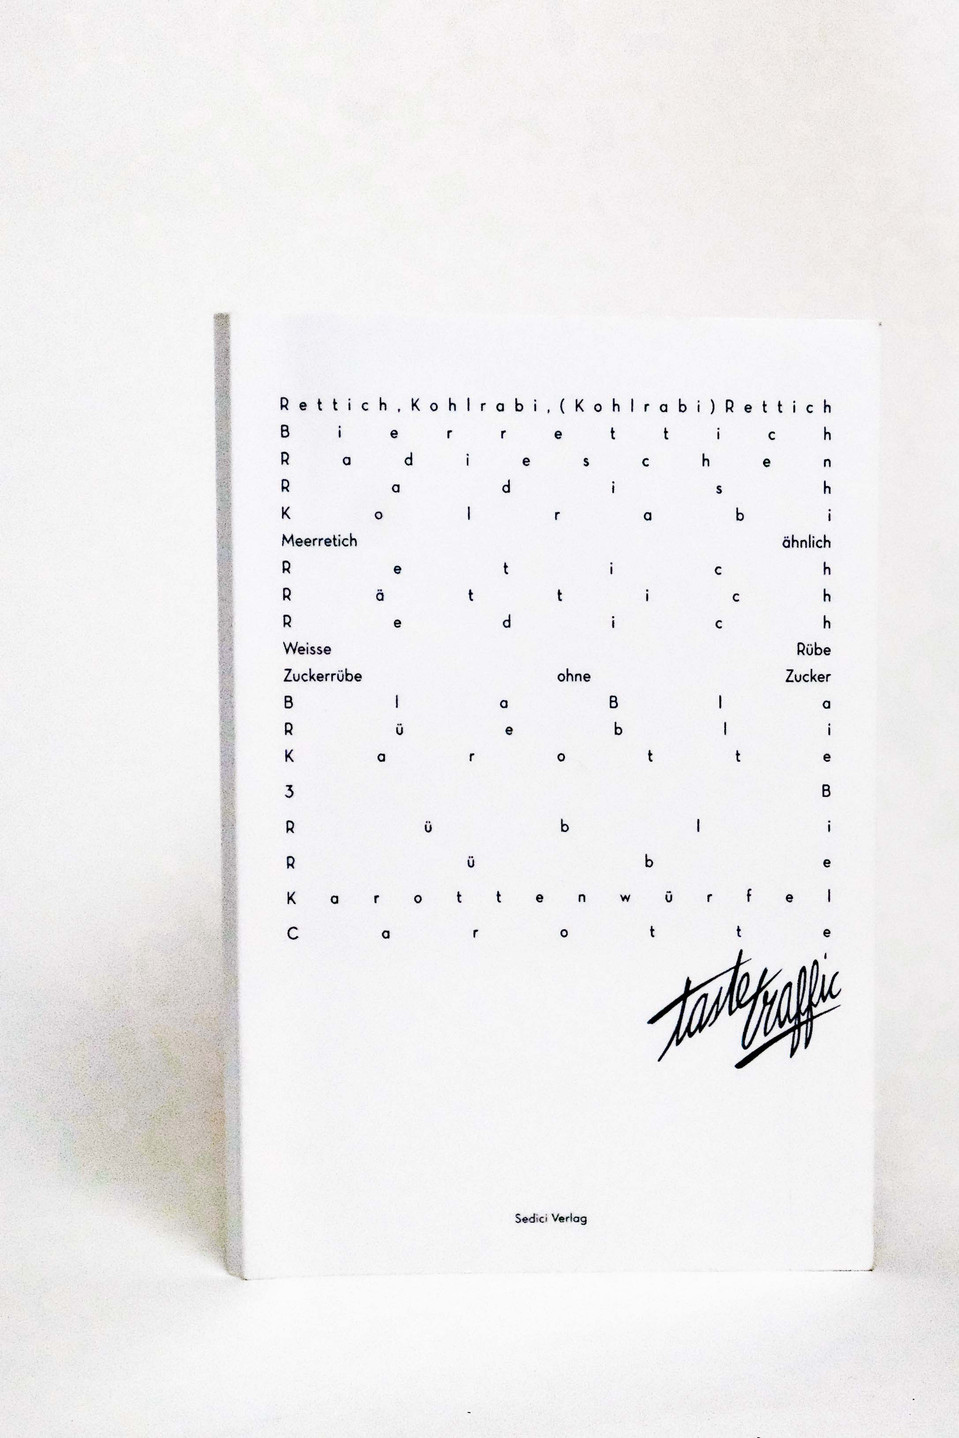 Rettich,Kohlrabi,(Kohlrabi)Rettich
Bierrettich
Radieschen
Radish
Kolrabi
Meerretich ähnlich
Retich
Rättich
Redich
Weisse Rübe
Zuckerrübe ohne Zucker
BlaBla
Rüebli
Karotte
3B
Rübli
Rübe
Karottenwürfel
Carotte
taste traffic
Sedici Verlag